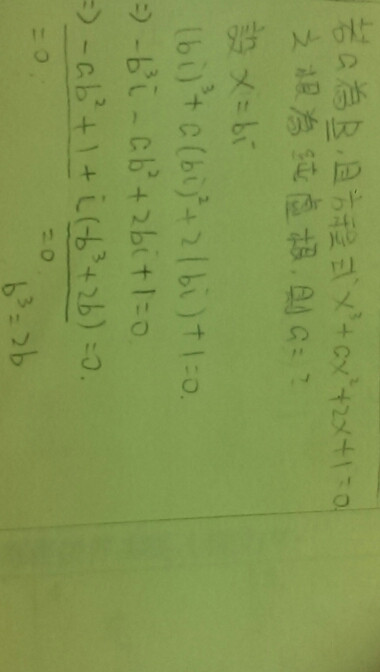 若a為R,且方程式x³+ax²+2x+1=0
之根為純虛根,則a=?
設x=bi
(bi)³+a(bi)²+2(bi)+1=0.
⇒-b³i-ab²+2bi+1=0
⇒-ab²+1+i(-b³+2b)=0.
=0. =0
b³=2b